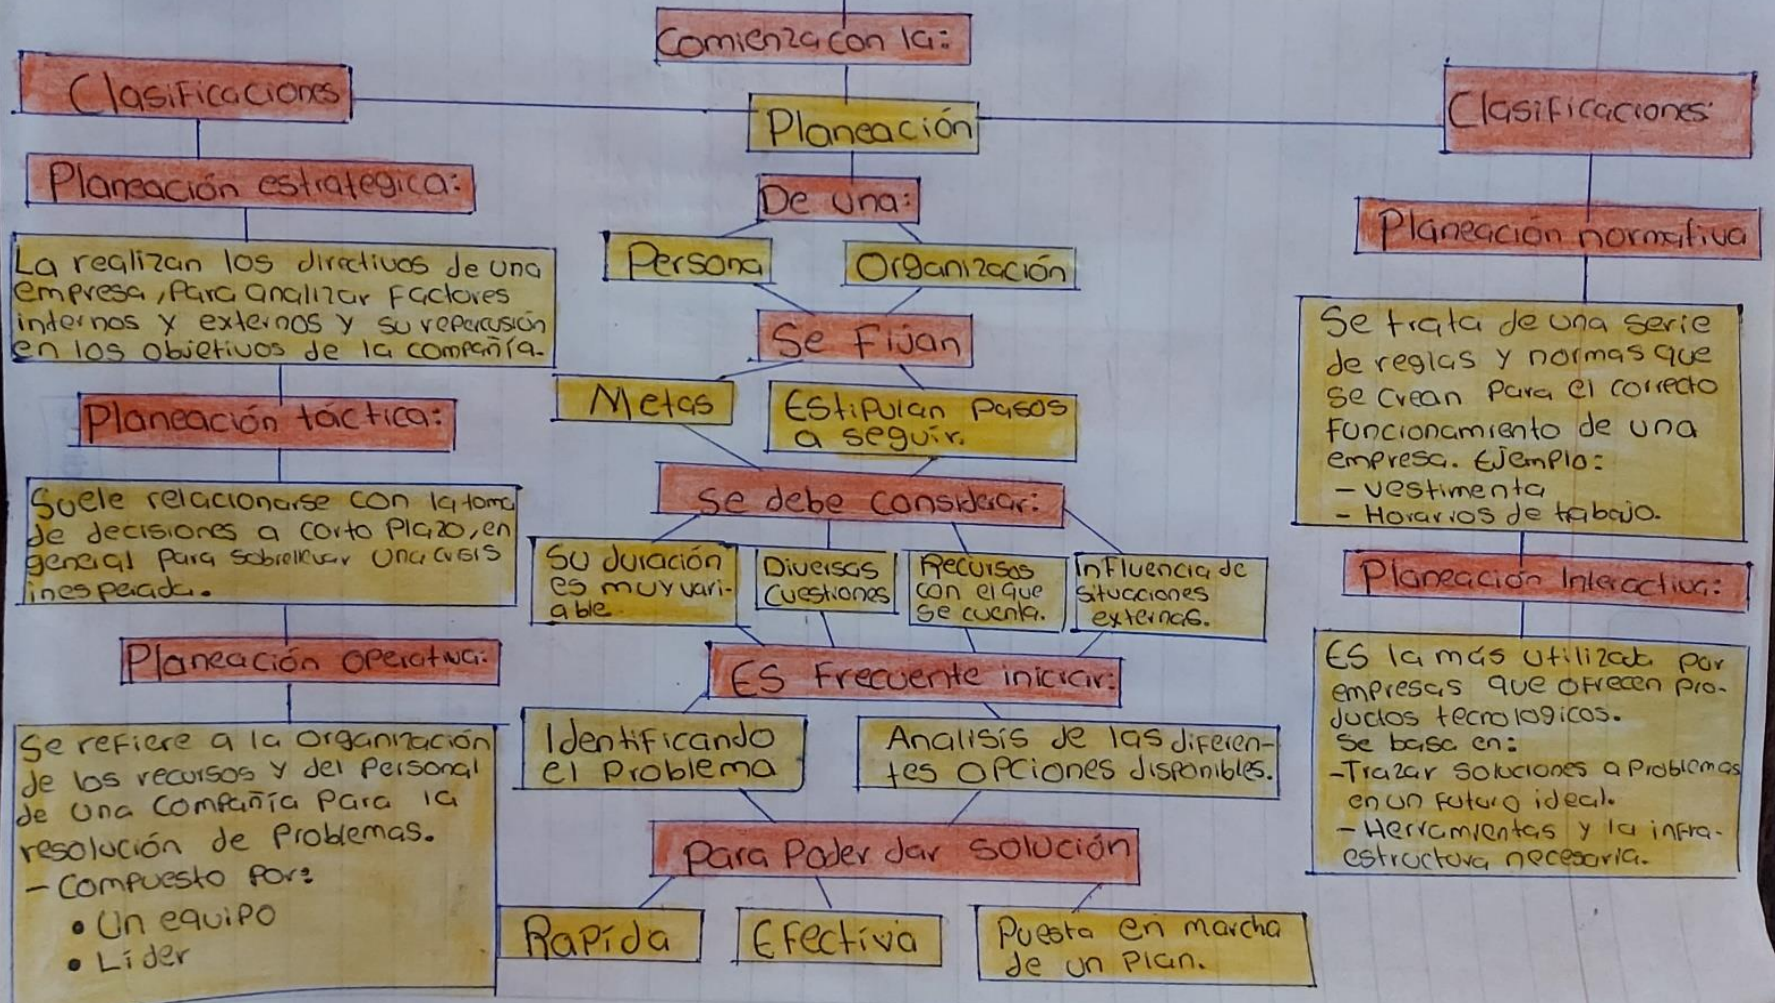 Comienza con la:
Planeación
Clasificaciones
Planeación estrategica:
La realizan los directivos de una
empresa, para analizar factores
internos y externos y su repercusión
en los objetivos de la compañía.
Planeación táctica:
Suele relacionarse con la toma
de decisiones a corto plazo, en
general para sobrellevar una crisis
inesperada.
Planeación operativa:
Se refiere a la organización
de los recursos y del personal
de una compañía para la
resolución de problemas.
- Compuesto por:
• Un equipo
• Líder
De una:
Persona
Organización
Se fijan
Metas
Estipulan pasos
a seguir.
Se debe considerar:
Su duración
es muy vari-
able.
Diversas
cuestiones
Recursos
con el que
se cuenta.
Influencia de
situaciones
externas.
Es frecuente iniciar:
Identificando
el problema
Analisis de las diferen-
tes opciones disponibles.
Para poder dar solución
Rapída
Efectiva
Puesta en marcha
de un plan.
Clasificaciones:
Planeación normativa
Se trata de una serie
de reglas y normas que
se crean para el correcto
funcionamiento de una
empresa. Ejemplo:
- Vestimenta
- Horarios de trabajo.
Planeación Interactiva:
Es la más utilizada por
empresas que ofrecen pro-
ductos tecnologicos.
Se basa en:
- Trazar soluciones a problemas
en un futuro ideal.
- Herramientas y la infra-
estructura necesaria.